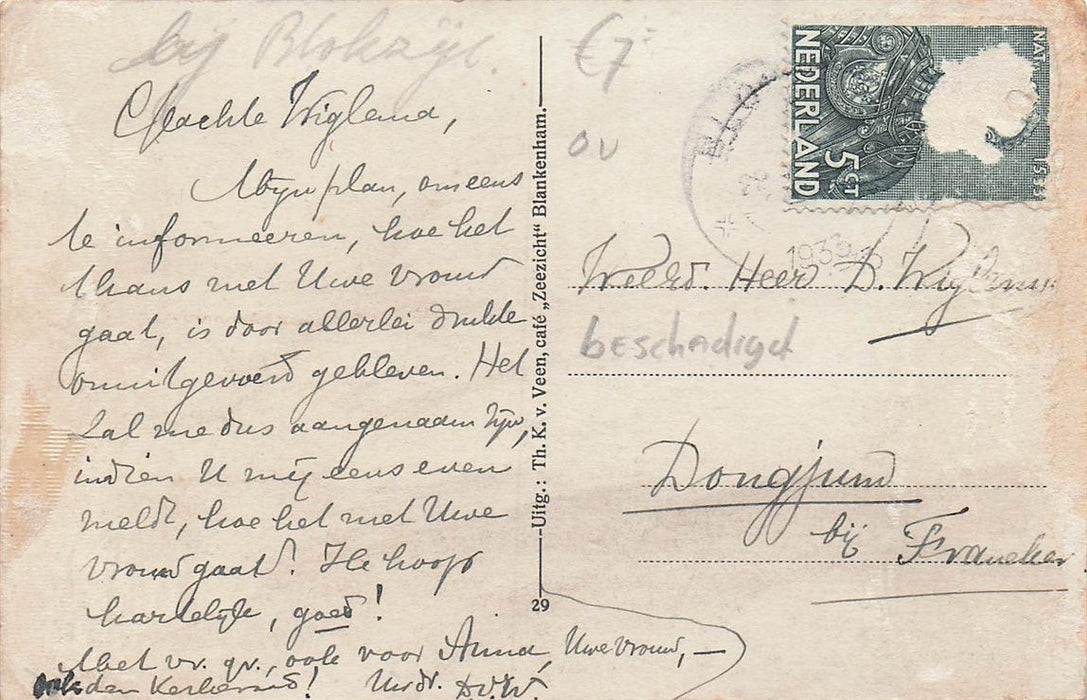 bij Blokzijl.
Geachte Wiglema,
Mijn plan, om eens
te informeeren, hoe het
thans met Uwe vrouw
gaat, is door allerlei drukte
onuitgevoerd gebleven. Het
zal me dus aangenaam zijn,
indien U mij eens even
meldt, hoe het met Uwe
vrouw gaat! Ik hoop
hartelijk, goed!
Met vr. gr., ook voor Anna, Uwe vrouw, —
ook den Kerkeraad! Uw dr. D.V.W.
Uitg.: Th. K. v. Veen, café „Zeezicht" Blankenham.
29
€7
OV
NEDERLAND
5 CT
NAT
BLO
1939
Weled. Heer D. Wiglema
beschadigd
Dongjum
bij Franeker